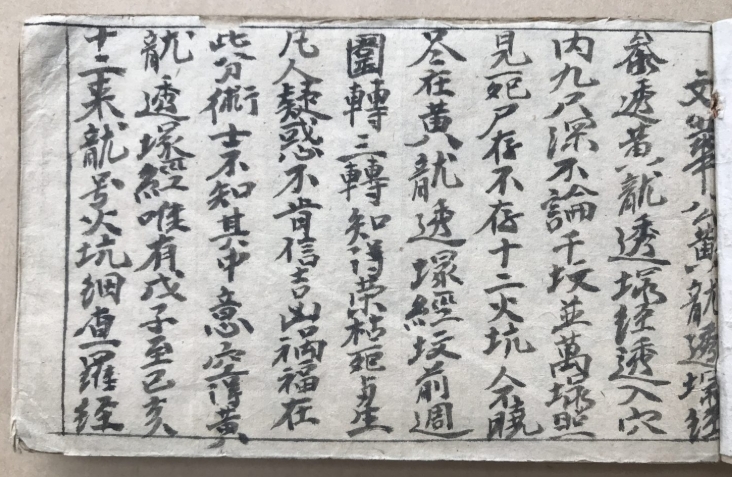 文華公黃龍透塚經
叅透黃龍透塚経透入穴
内九尺深不論千坟並萬塚照
見死尸存不存十二火坑人余曉
尽在黃龍透塚經坟前週
圍轉三轉知得荣枯死與生
凡人疑惑不肯信吉凶禍福在
此分術士不知其中意空得黃
龍透塚經唯有戊子至己亥
十二来龍号火坑細查羅経